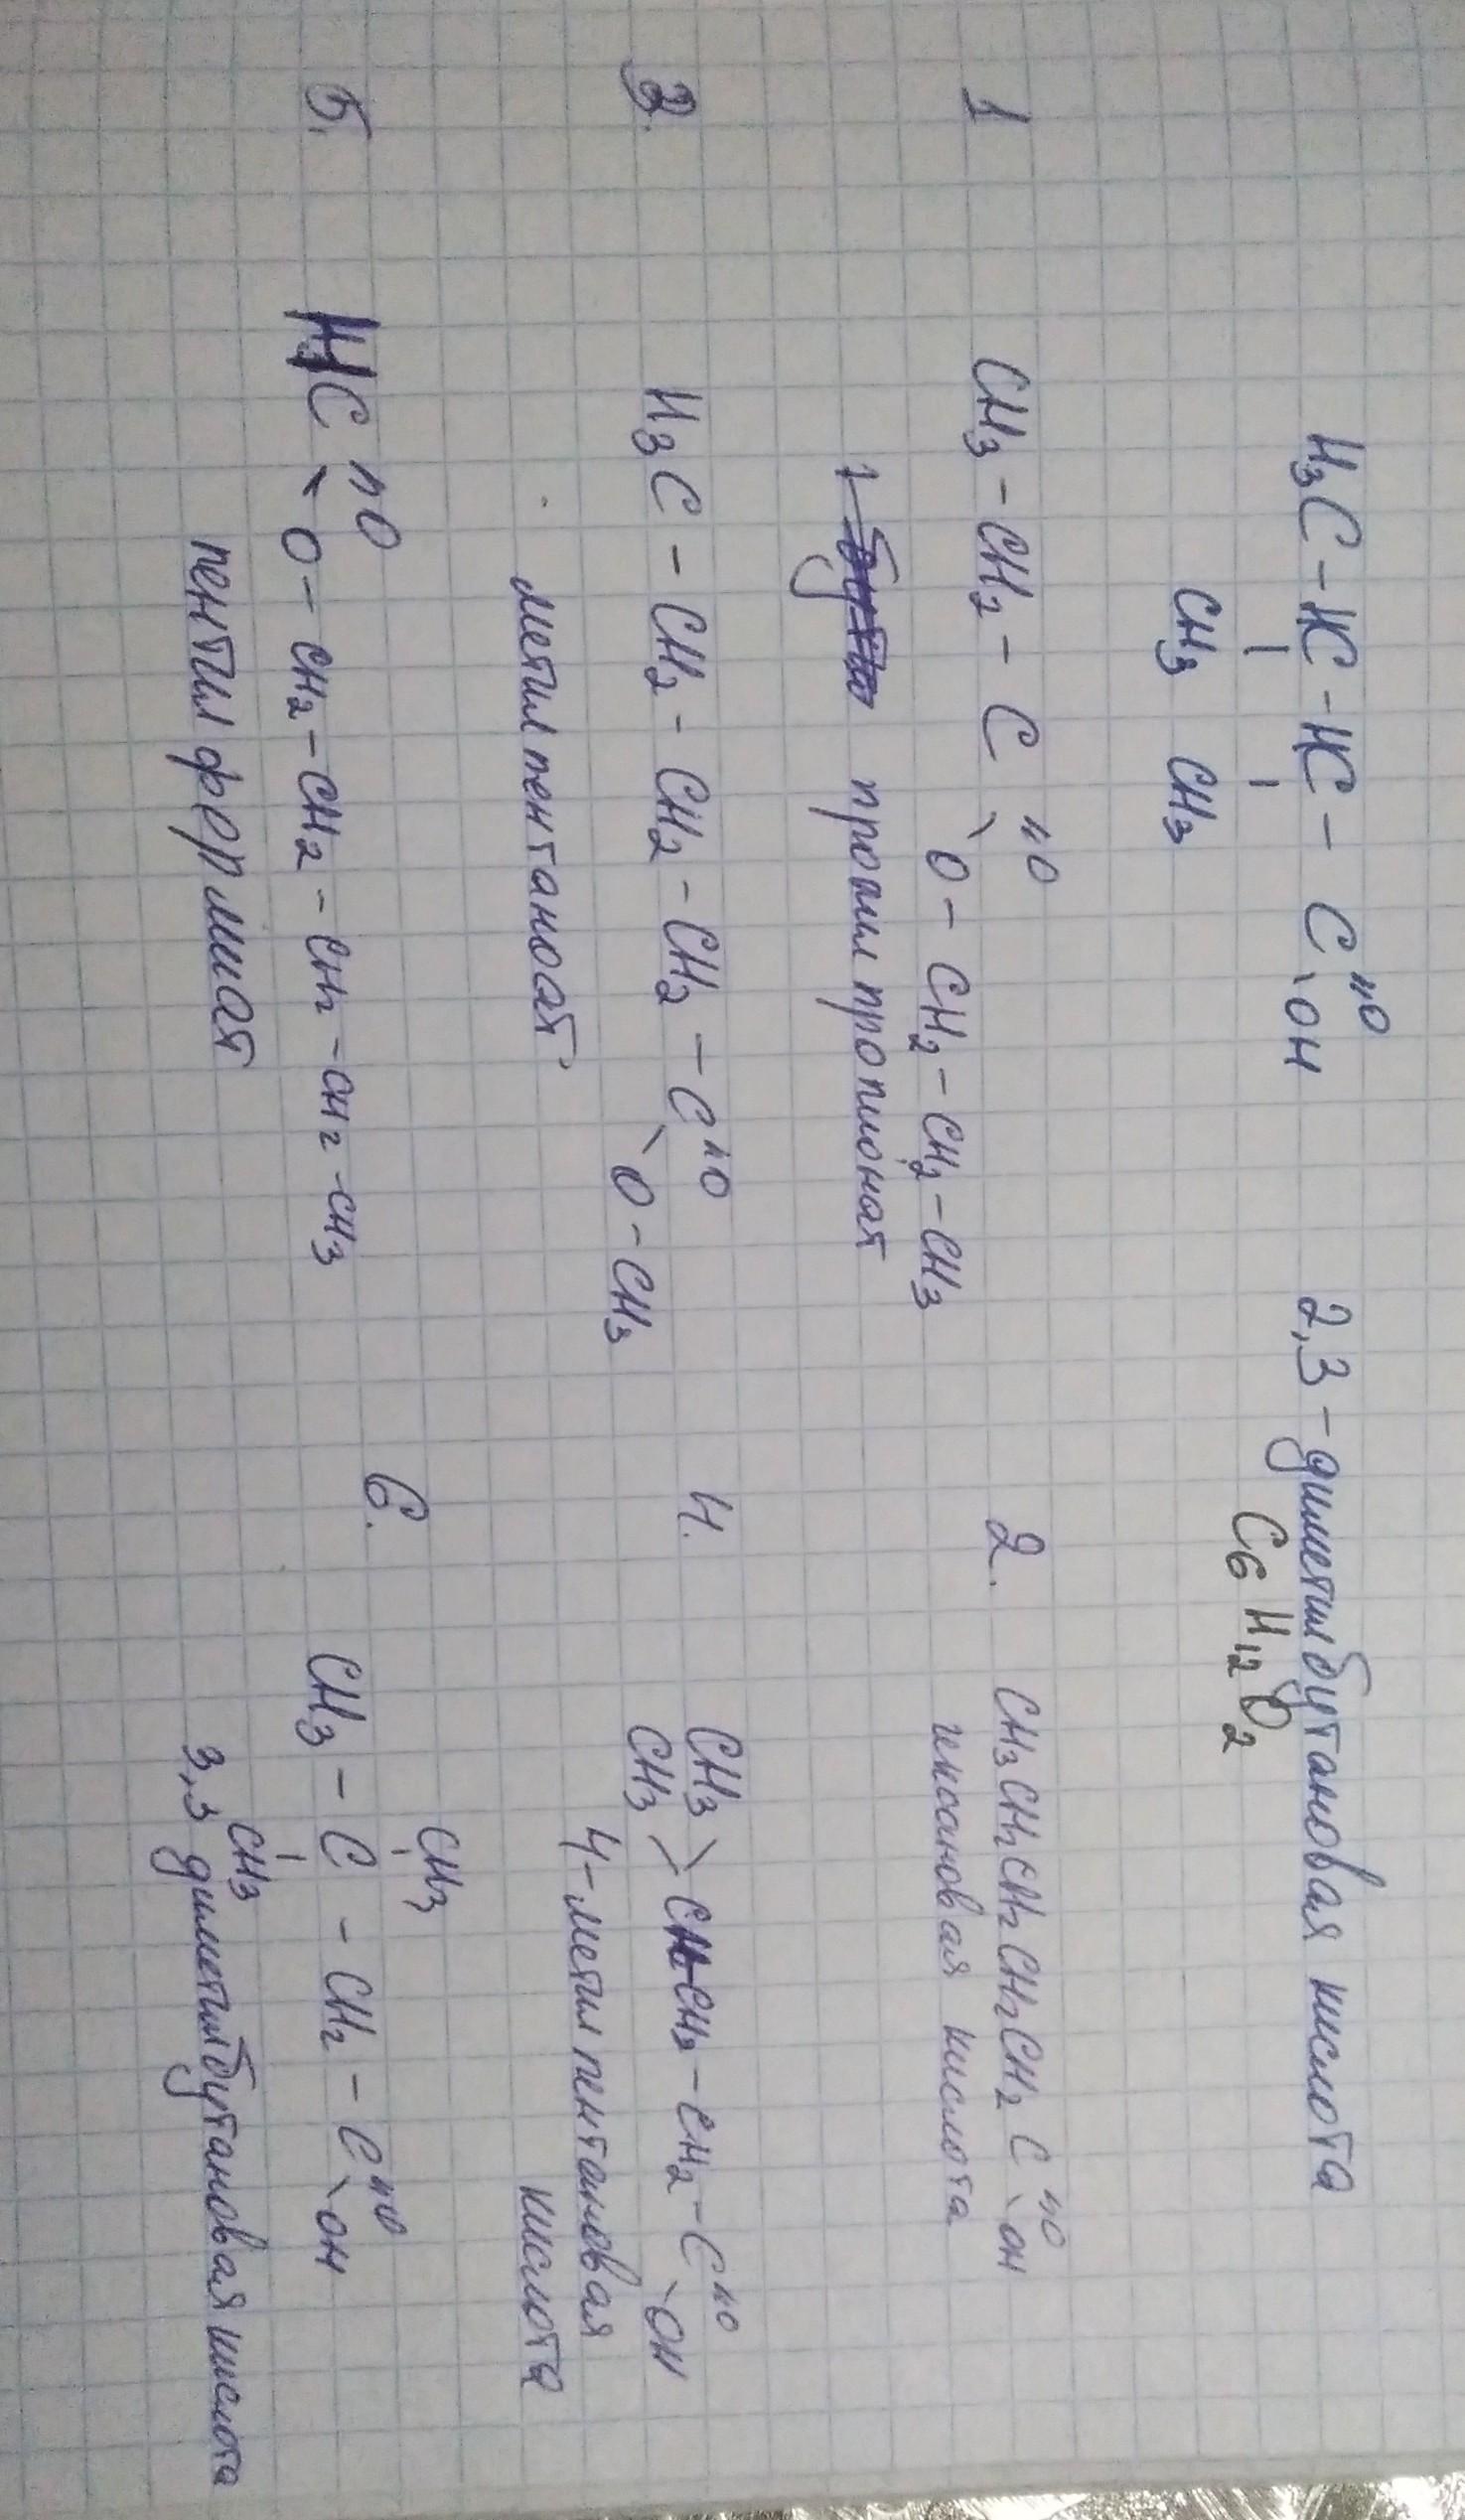 H₃C - HC - HC - C "O \ OH 2,3 - диметилбутановая кислота
CH₃ CH₃ C₆H₁₂O₂
1 CH₃ - CH₂ - C "O \ O - CH₂ - CH₂ - CH₃
пропилпропионат
2. CH₃CH₂CH₂CH₂CH₂C "O \ OH
гексановая кислота
3. H₃C - CH₂ - CH₂ - CH₂ - C "O \ O - CH₃
метилпентаноат
4. CH₃
CH₃ > CH-CH₂ - CH₂ - C "O \ OH
4-метилпентановая
кислота
5. HC "O \ O - CH₂ - CH₂ - CH₂ - CH₂ - CH₃
пентилформиат
6. CH₃
CH₃ - C - CH₂ - C "O \ OH
CH₃
3,3 диметилбутановая кислота